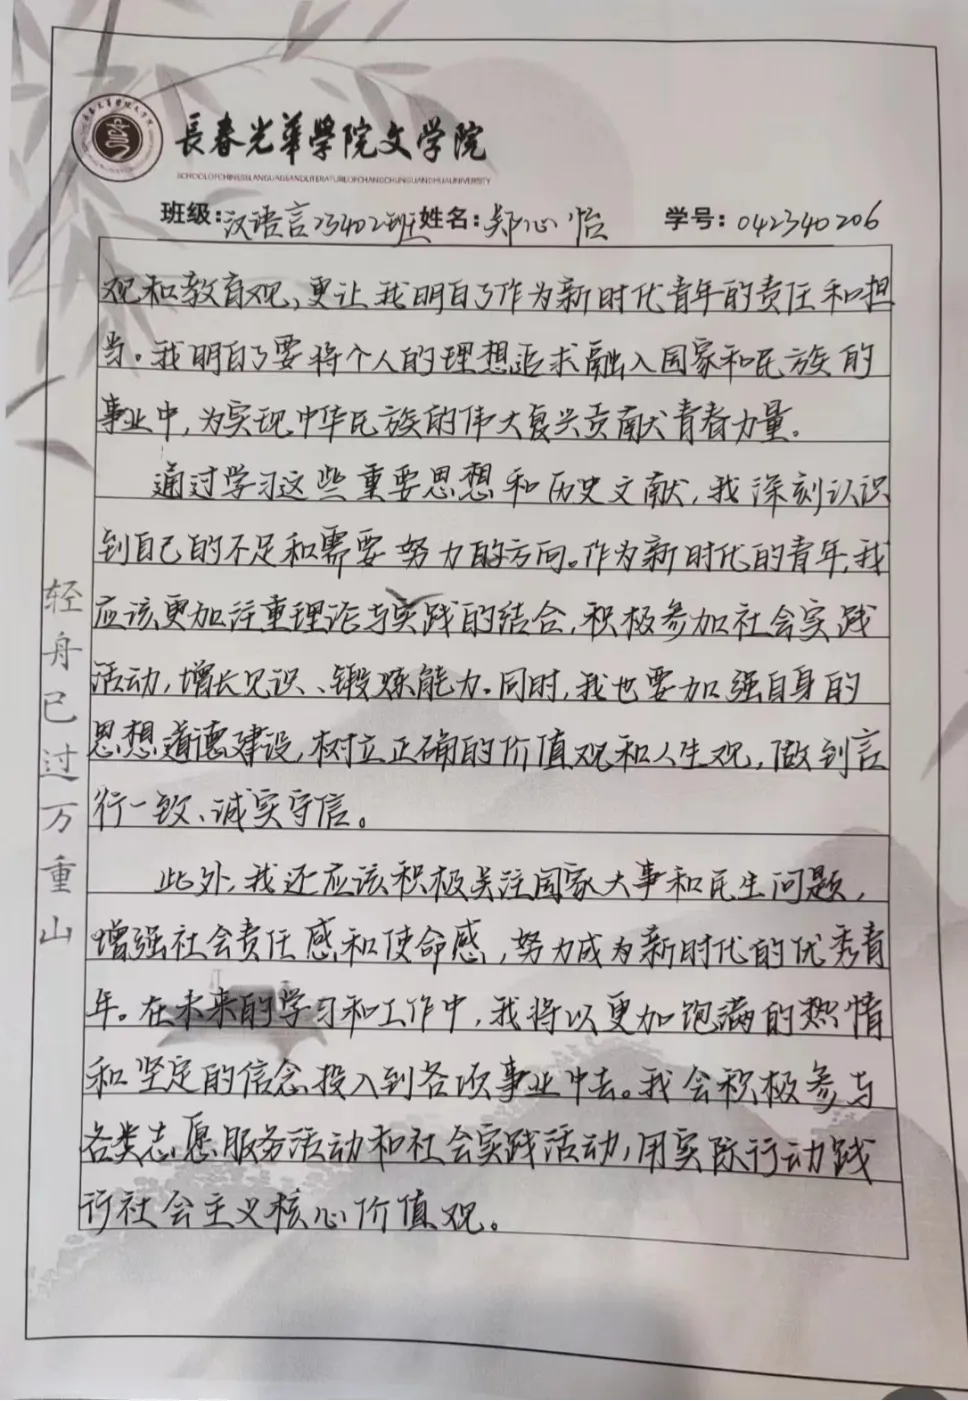 長春光華學院文学院
SCHOOLOFCHINESELANGUAGEANDLITERATUREOFCHANGCHUNGUANGHUAUNIVERSITY
班级:汉语言23402班姓名:郑心怡 学号:042340206
观和教育观,更让我明白了作为新时代青年的责任和担
当。我明白了要将个人的理想追求融入国家和民族的
事业中,为实现中华民族的伟大复兴贡献青春力量。
通过学习这些重要思想和历史文献,我深刻认识
到自己的不足和需要努力的方向。作为新时代的青年,我
应该更加注重理论与实践的结合,积极参加社会实践
活动,增长见识、锻炼能力。同时,我也要加强自身的
思想道德建设,树立正确的价值观和人生观,做到言
行一致、诚实守信。
此外,我还应该积极关注国家大事和民生问题,
增强社会责任感和使命感,努力成为新时代的优秀青
年。在未来的学习和工作中,我将以更加饱满的热情
和坚定的信念投入到各项事业中去。我会积极参与
各类志愿服务活动和社会实践活动,用实际行动践
行社会主义核心价值观。
轻舟已过万重山